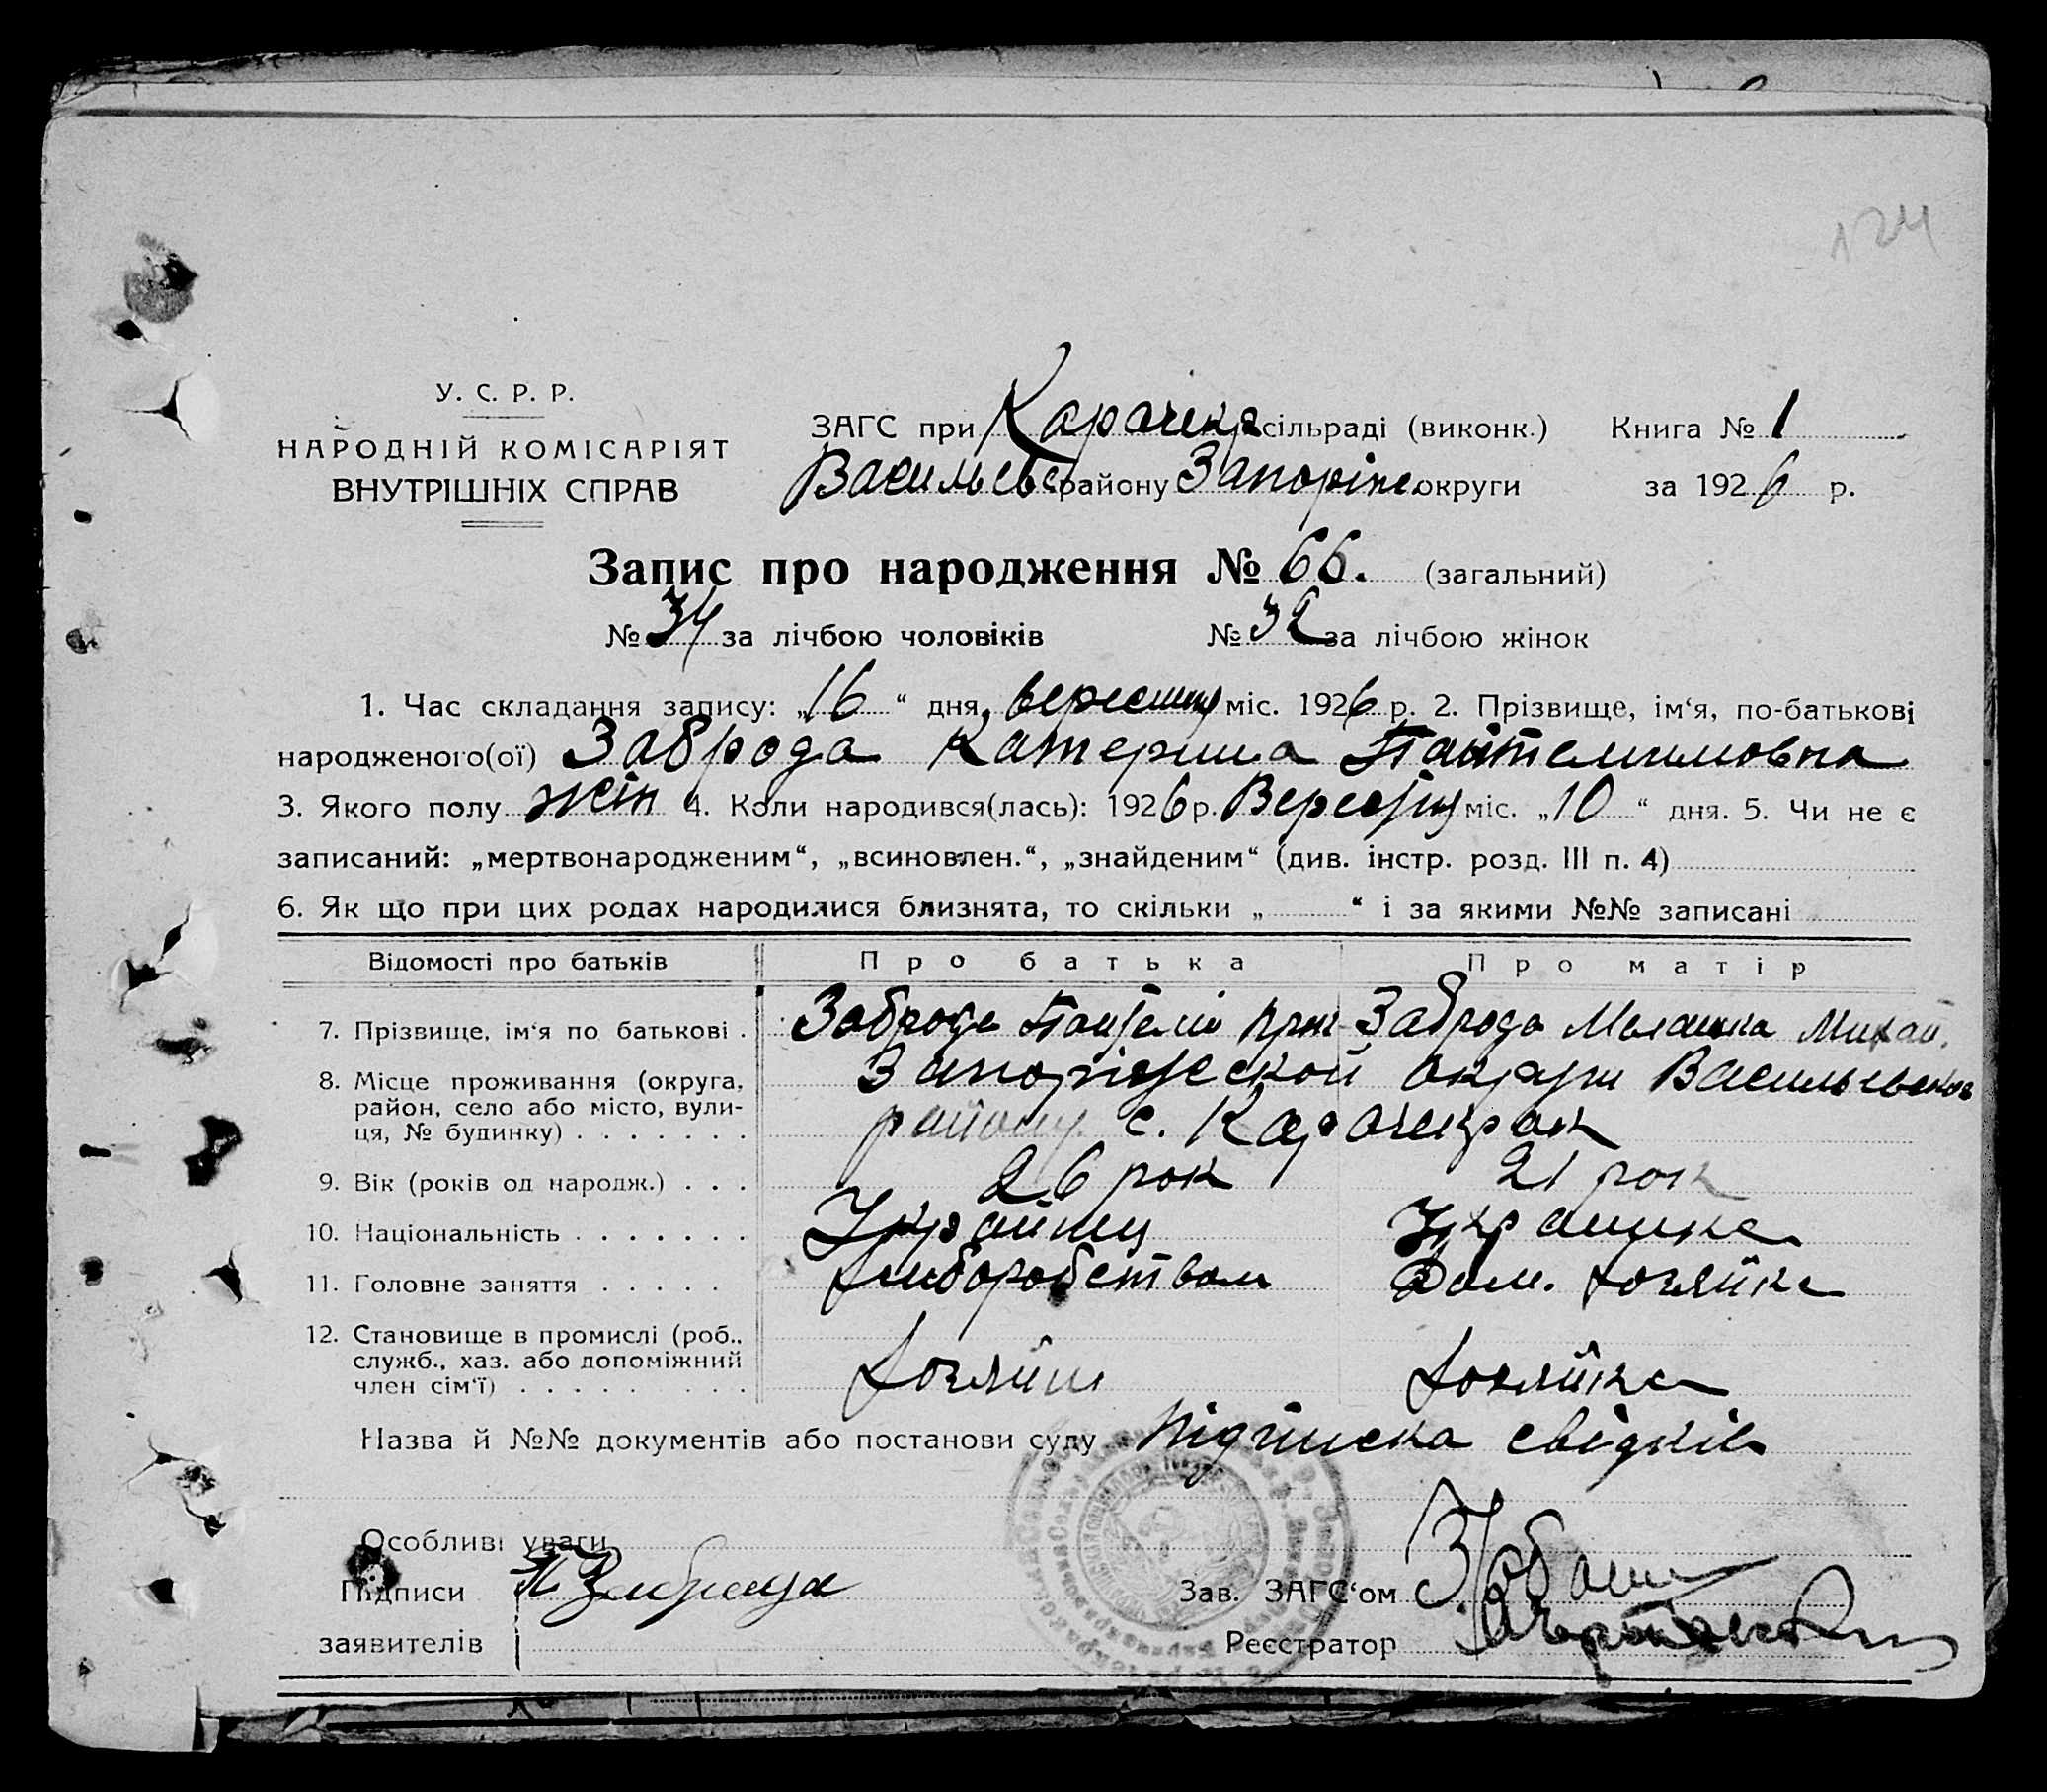 124
У. С. Р. Р.
НАРОДНІЙ КОМІСАРІЯТ
ВНУТРІШНІХ СПРАВ
ЗАГС при Карачекр сільраді (виконк.) Книга № 1
Васильевс району Запоріж. округи за 1926 р.
Запис про народження № 66. (загальний)
№ 34 за лічбою чоловіків № 32 за лічбою жінок
1. Час складання запису: „16“ дня вересня міс. 1926 р. 2. Прізвище, ім‘я, по-батькові
народженого(ої) Заброда Катерина Пантелимовна
3. Якого полу жін 4. Коли народився(лась): 1926 р. Вересня міс. „10“ дня. 5. Чи не є
записаний: „мертвонародженим“, „всиновлен.“, „знайденим“ (див. інстр. розд. III п. 4)
6. Як що при цих родах народилися близнята, то скільки „ “ і за якими №№ записані
Відомості про батьків Про батька Про матір
7. Прізвище, ім‘я по батькові . Заброда Пантелій Заброда Маланка Михай.
8. Місце проживання (округа, Запоріжской округи Васильевской
район, село або місто, вули-
ця, № будинку) . . . . . . . району с. Карачекрак
9. Вік (років од народж.) . . . 26 рок 21 рок
10. Національність . . . . . . . Українец Українка
11. Головне заняття . . . . . Хліборобством Дом. хозяйка
12. Становище в промислі (роб.,
служб., хаз. або допоміжний
член сім‘ї) . . . . . . . . Хозяїн Хозяйка
Назва й №№ документів або постанови суду Підписка свідків
Особливі уваги
Підписи П Заброда Зав. ЗАГС‘ом
заявителів Реєстратор